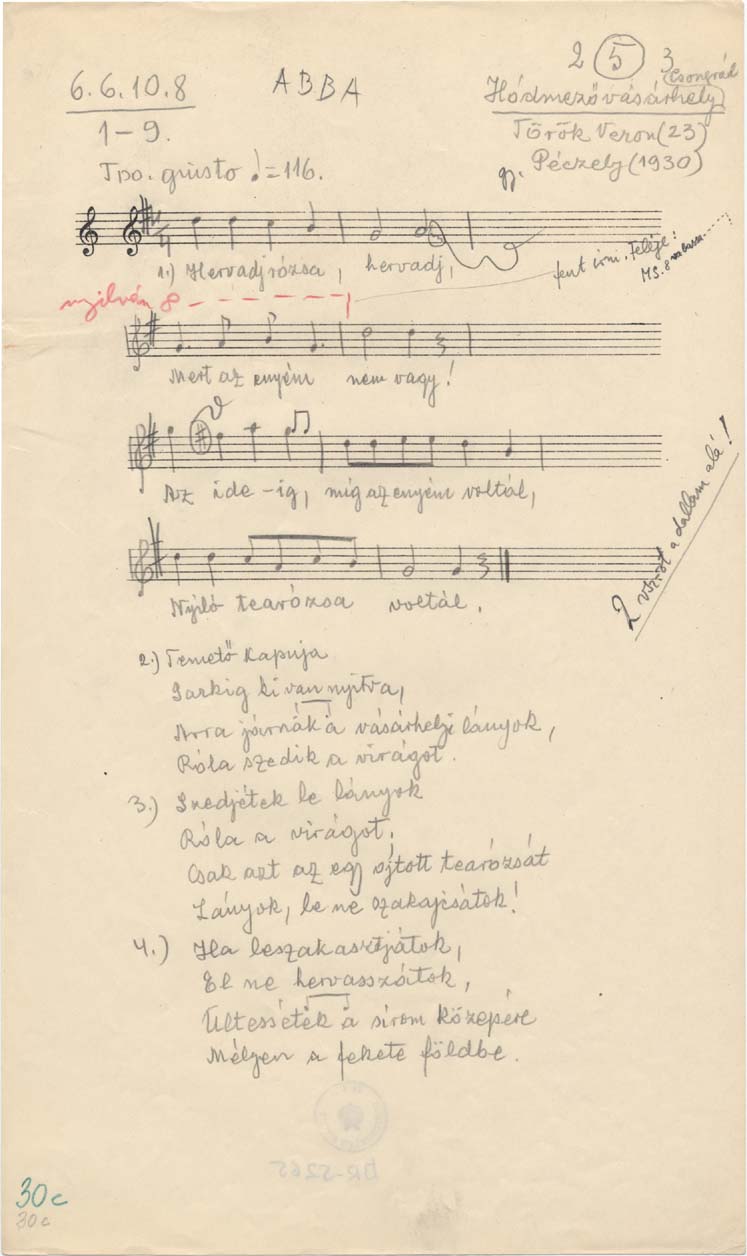 2 5 3
6.6.10.8 ABBA Csongrád
Hódmezővásárhely
1-9. Török Veron (23)
Tpo. giusto ♩=116. gy. Péczely (1930)
1.) Hervadj rózsa, hervadj,
fent írni. Felége!
MS. 8
nyilván 8
Mert az enyém nem vagy!
Az ide-ig, míg az enyém voltál,
Nyíló tearózsa voltál.
2 vszrot a dallam alá!
2.) Temető kapuja
Sarkig ki van nyitva,
Arra járnák a vásárhelyi lányok,
Róla szedik a virágot.
3.) Szedjétek le lányok
Róla a virágot,
Csak azt az egy ojtott tearózsát
Lányok, le ne szakajcsátok!
4.) Ha leszakasztjátok,
El ne hervasszátok,
Ültessétek a sírom közepére
Mélyen a fekete földbe.
BR-5265
30c
30c